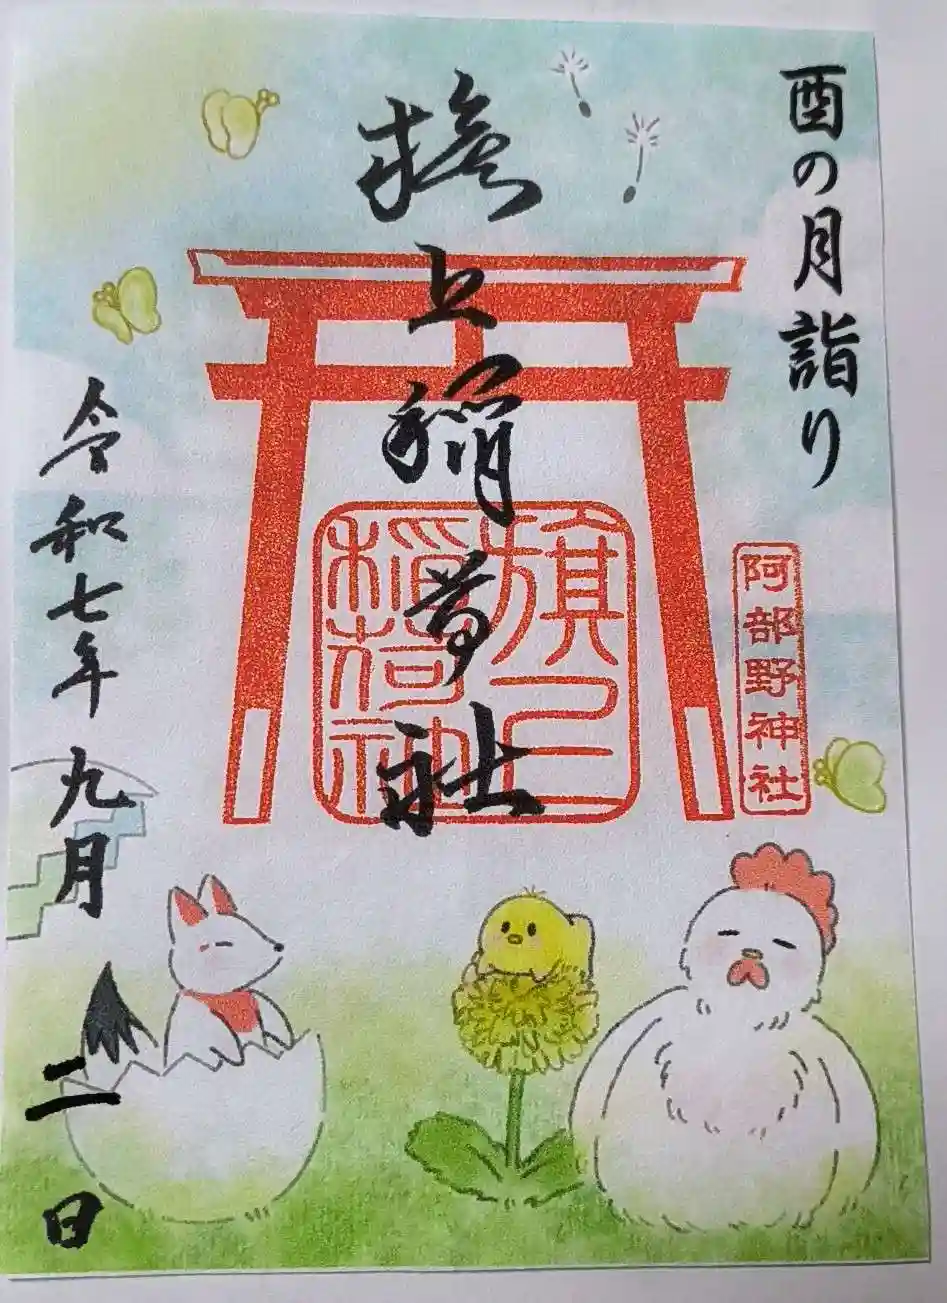 酉の月詣り
阿部野神社
旗上稲荷社
令和七年九月二日